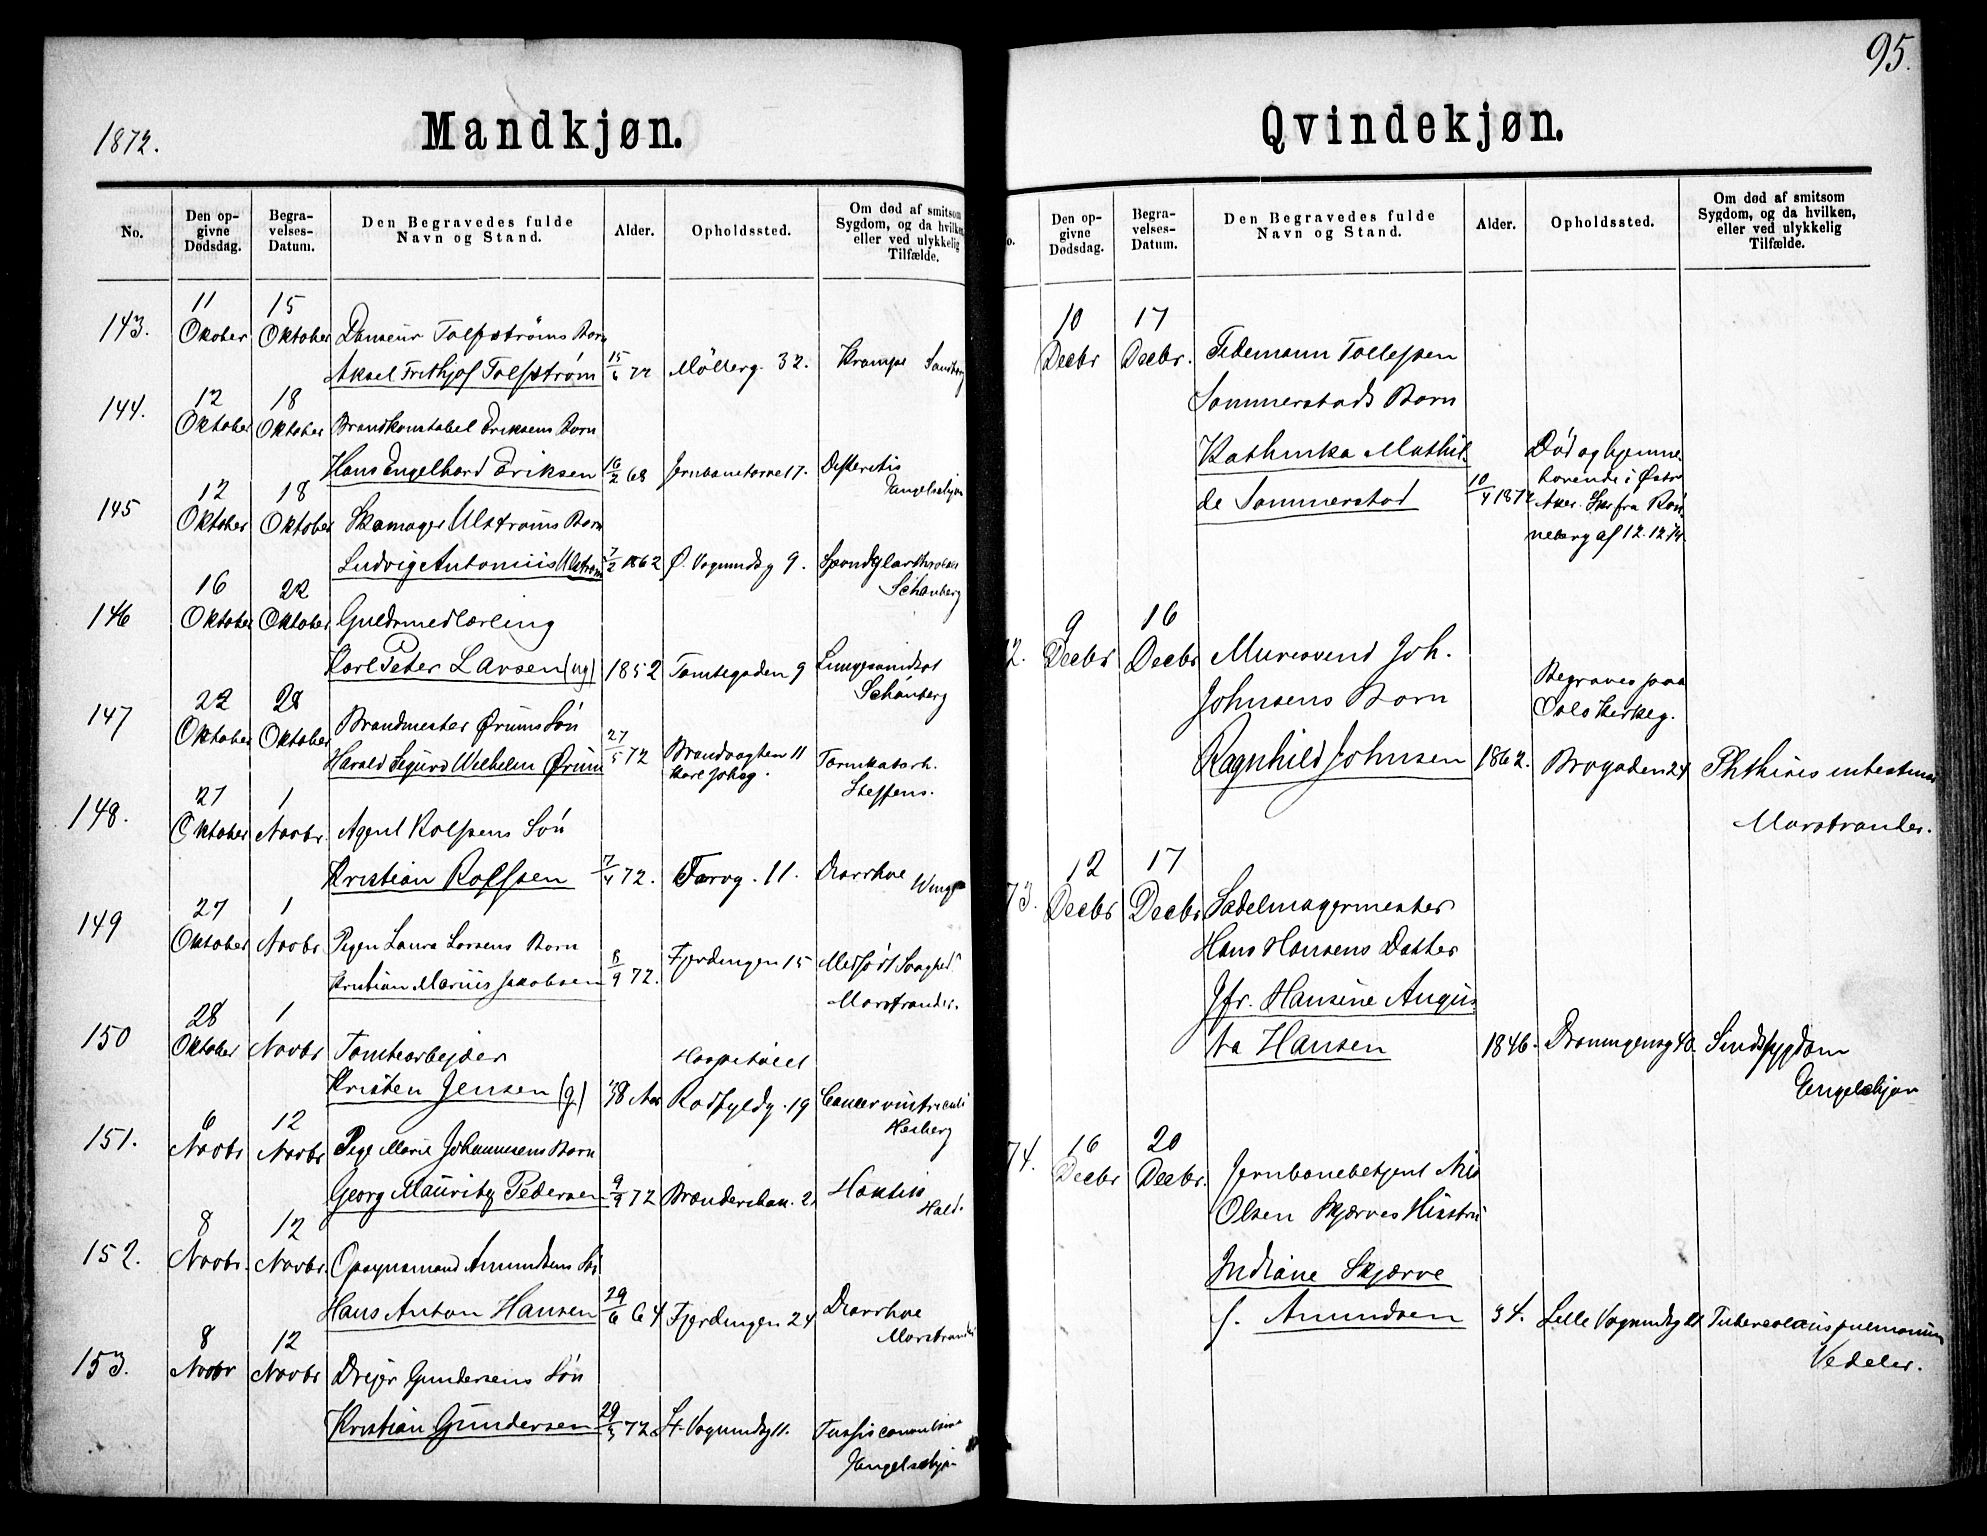 95.
1872.
Mandkjøn.
No.
Den op-
givne
Dødsdag.
Begra-
velses-
Datum.
Den Begravedes fulde
Navn og Stand.
Alder.
Opholdssted.
Om død af smitsom
Sygdom, og da hvilken,
eller ved ulykkelig
Tilfælde.
143.
11
Okober
15
Oktober
Danseur Tolfstrøms Barn
Aksel Frithjof Tolfstrøm
15/6 72
Möllerg. 32.
Krampe
144.
12
Oktober
18
Oktober
Brandkonstabel Eriksens Barn
Hans Engelhard Eriksen
16/2 68
Jernbanetorvet 7.
Difteritis
Engelschjøn
145
12
Oktober
18
Oktober
Skomager Ulstrøms Barn
Ludvig Antonius Ulstrøm
7/2 1862
Ø. Vognmdsg 9.
Schønberg
146
16
Oktober
22
Oktober
Guldsmedlærling
Karl Peter Larsen (ug)
1852
Tomtegaden 9
Schønberg
147
22
Oktober
28
Oktober
Brandmester Ørums Søn
Harald Sigurd Wilhelm Ørum
27/5 72
Brandvagten 11
Karl Johsg.
Tarmkatarh.
Steffens.
148.
27
Oktober
1
Novbr.
Agent Rolfsens Søn
Kristian Rolfsen
7/4 72.
Torvg. 11.
Diarrhoe
Winge
149
27
Oktober
1
Novbr.
Pigen Laura Larsens Barn
Kristian Marius Jakobsen
8/9 72.
Fjerdingen 15
Medfødt Svaghed.
Marstrander.
150
28
Oktober
1
Novbr
Tomtearbejder
Kristen Jensen (g)
38 Aar
Hospitalet
Rodfyldg. 19
Cancer ventriculi
Heiberg
151.
6
Novbr
12
Novbr
Pige Marie Johannesens Barn
Georg Mauritz Pedersen
9/9 72
2.
152.
8
Novbr.
12
Novbr.
Opsynsmand Amundsens Søn
Hans Anton Hansen
29/6 64
Fjerdingen 24
Diarrhoe
Marstrander
153.
8
Novbr
12
Novbr
Drejer Gundersens Søn
Kristian Gundersen
29/3 72.
St. Vognmdsg 11.
Tussis convulsiva
Engelschjøn
Qvindekjøn.
o.
Den op-
givne
Dødsdag.
Begra-
velses-
Datum.
Den Begravedes fulde
Navn og Stand.
Alder.
Opholdssted.
Om død af smitsom
Sygdom, og da hvilken,
eller ved ulykkelig
Tilfælde.
10
Decbr
17
Decbr.
Tidemann Tollefsen
Sommerstads Barn
Kathinka Mathil-
de Sommerstad
10/4 1872
Død og hjemme-
hørende i Østre
Aker. Skr fra Røn-
neberg af 12.12.74
2.
9
Decbr
16
Decbr
Muresvend Joh.
Johnsens Barn
Ragnhild Johnsen
1862.
Begraves paa
Oslo Kirkeg.
Brogaden 24
Phthisis intestinal
Marstrander.
73.
12
Decbr
17
Decbr
Sadelmagermester
Hans Hansens Datter
Jfr. Hansine Augus-
ta Hansen
1846.
Dronningensg 40.
Sindssygdom
Engelschjøn
74.
16
Decbr
20
Decbr.
Jernbanebetjent Nils
Olsen Skjærves Hustru
Indiane Skjærve
f. Amundsen
34.
Lille Vognmdsg
Tuberculosis pulmonum
Vedeler.